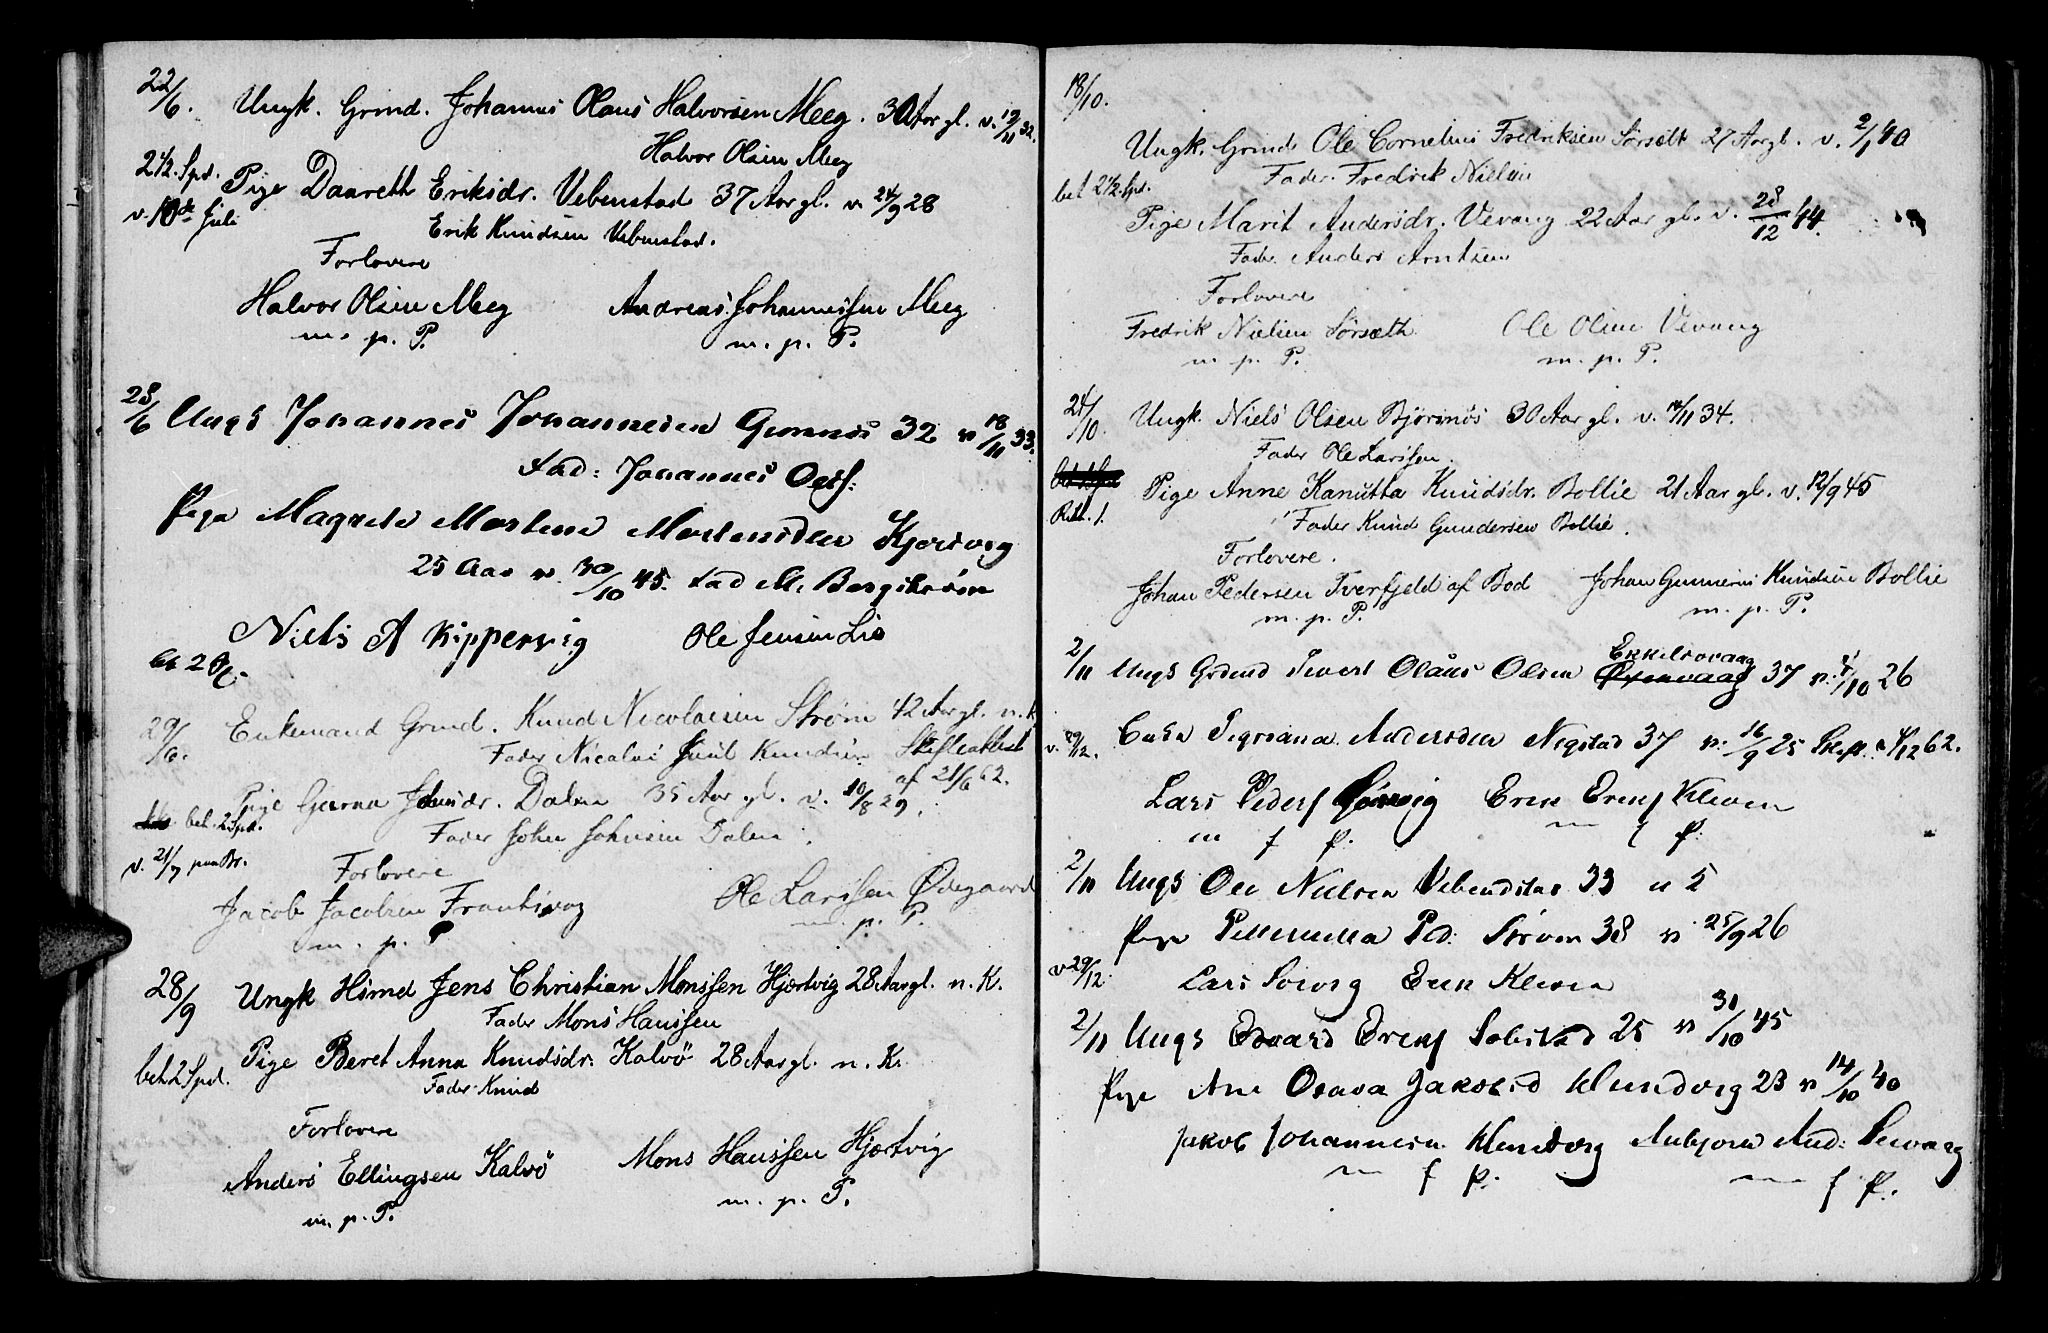 22/6. Ungk. Grmd. Johannes Olaus Halvorsen Meeg. 30 Aar gl. v. 19/11 32.
Halvor Olsen Meeg
2 1/2 Spd. Pige Daareth Eriksdr. Vebenstad 37 Aar gl. v. 24/9 28
v. 10de Juli Erik Knudsen Vebenstad.
Forlovere
Halvor Olsen Meeg Andreas Johannessen Meeg
m. p. P. m. p. P.
28/6 Ungk Johannes Johannesen 32 v 18/11 33.
Fad: Johannes Olss:
Pige Magrete Martena Mortensdtr
25 Aar v. 30/10 45. Fad M. Bergstrøm
Niels A Kippervig Ole Jensen Lio
29/6. Enkemand Grmd. Knud Nicolaisen Strøm 42 Aar gl. n. K
Fader Nicolai Juul Knudsen Skifteattest
af 21/6 62.
Pige Gurina Johnsdr. Dalen 35 Aar gl. v. 10/8 29.
bet. 2 Spd. Fader John Johnsen Dalen.
v. 21/7 paa Br. Forlovere
Jacob Jacobsen Frantsvog Ole Larssen Ødegaard
m. p. P m. p. P.
28/9 Ungk Hsmd Jens Christian Monssen Hjertvig 28 Aar gl. n. K.
Fader Mons Hanssen
bet. 2 Spd. Pige Beret Anna Knudsdr. Kalvö 28 Aar gl. n. K.
Fader Knud
Forlovere
Anders Ellingsen Kalvö Mons Hanssen Hjertvig
m. p. P. m. p. P.
18/10.
Ungk. Grmd Ole Cornelius Fredriksen Sørsæth 27 Aar gl. v. 2/1 40
Fader Fredrik Nielsen
bet 2 1/2 Spd.
Pige Marit Andersdr. Vevang 22 Aar gl. v. 28/12 44.
Fader Anders Arntsen
Forlovere
Fredrik Nielsen Sørsæth Ole Olsen Vevang
m. p. P. m. p. P.
24/10. Ungk. Niels Olsen Bjørnnös 30 Aar gl. v. 14/11 34.
Fader Ole Larssen.
Pige Anne Kanutta Knudsdr. Bollie 21 Aar gl. v. 12/9 45
Fader Knud Gundersen Bollie.
Forlovere.
Johan Pedersen Tverfjeld af Bod Johan Gunnerius Knudsen Bollie
m. p. P. m. p. P.
2/11 Ungk Grdmd Sivert Olåus Olsen 37 v. 26
v. 29/12. Enke Andersdtr Negstad 37 v. 16/9 25
Lars Peders Sörvig Erik Eriks Kleven
m f P. m f P.
2/11 Ungk Ole Nielsen Vebenstad 33
Pige Petternella Ped: Strøm 38 v 25/9 26
v 29/12. Lars Sørvig Erik Kleven
2/11 Ungk Edvard Eriks Solstad 25 v 31/10 45
Pige Ane Olava Jakobsd 23 v 14/10 40
Jakob Johannesen
m f P. m f P.